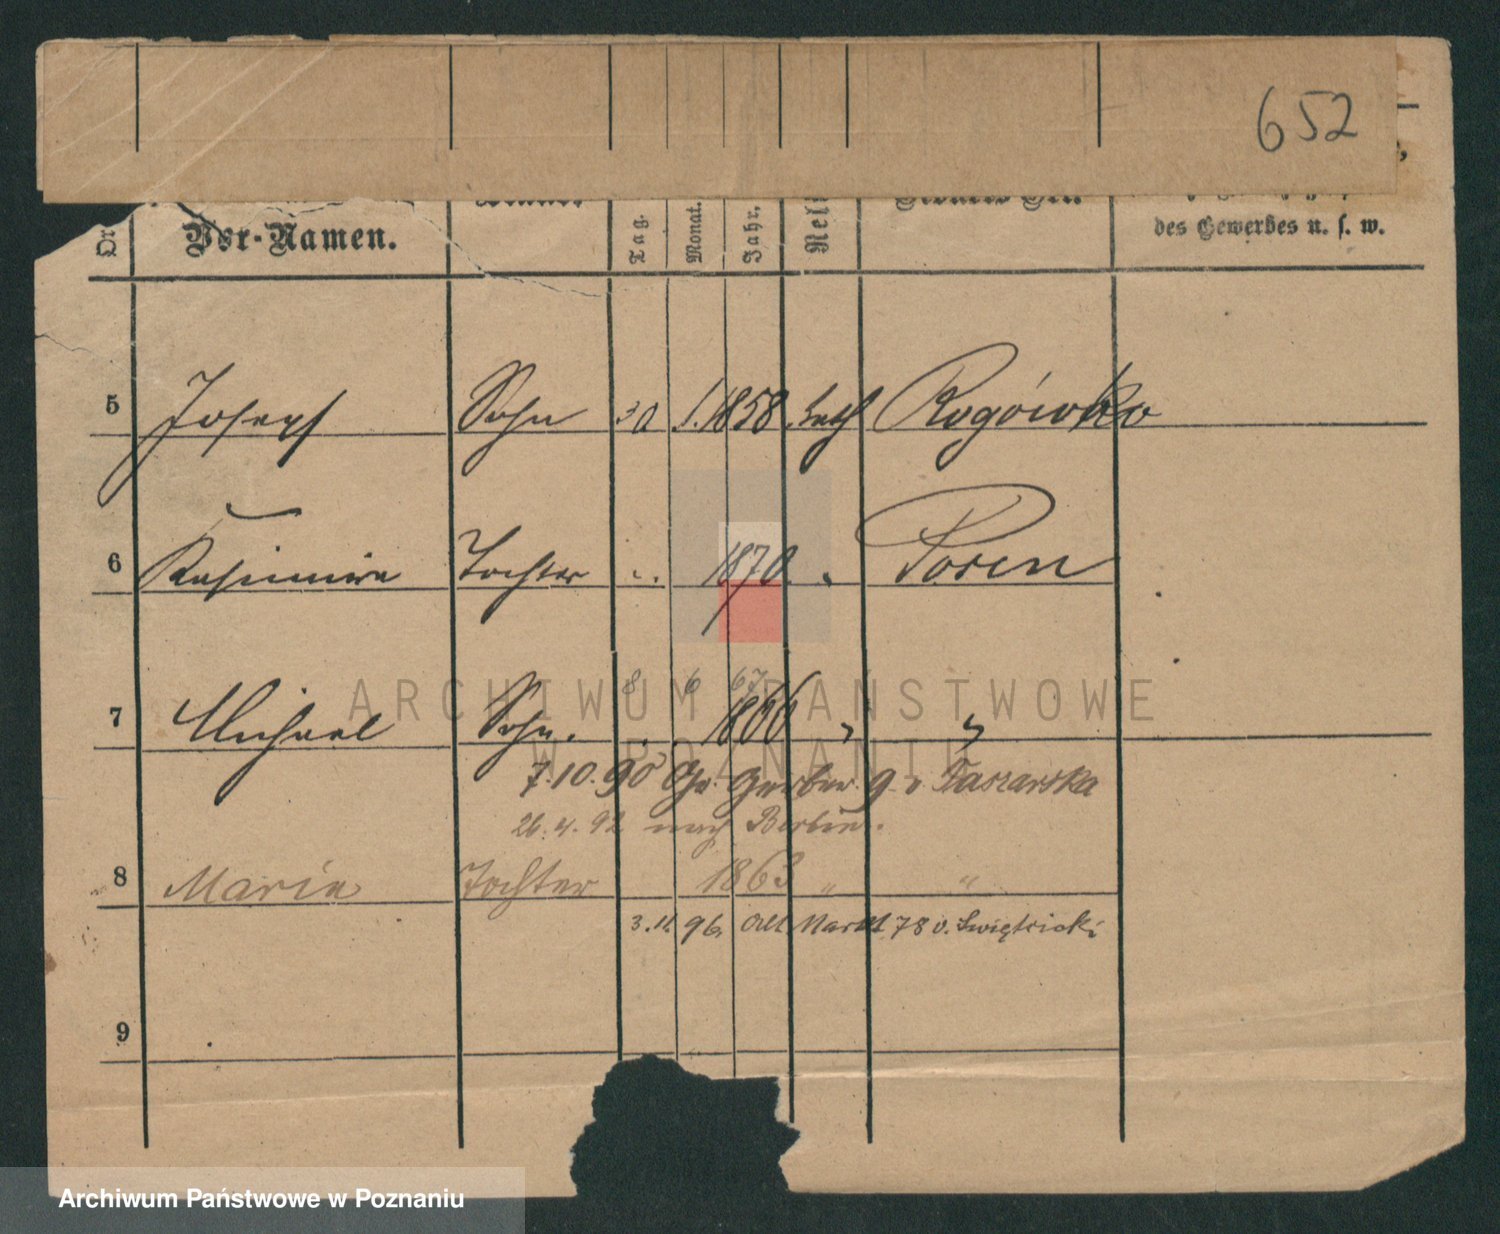 652
des Gewerbes u. s. w.
Nr
Vor-Namen.
Tag.
Monat.
Jahr.
5 Joseph Sohn 30 1. 1858 kath Rogówko
6 Kasimira Tochter 1870 " Posen
8 6 67
7 Michael Sohn. 1866 " "
7.10.90 Gr. Gerber 9 v Taszarska
26.4.92 nach Berlin.
8 Marie Tochter 1863 " "
3.11.96. Alt Markt 78 v.
9
ARCHIWUM PAŃSTWOWE
W POZNANIU
Archiwum Państwowe w Poznaniu